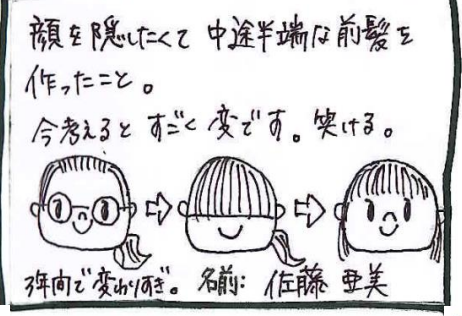 顔を隠したくて 中途半端な前髪を
作ったこと。
今考えると すごく変です。笑ける。
3年間で変わりすぎ。 名前: 佐藤 亜美